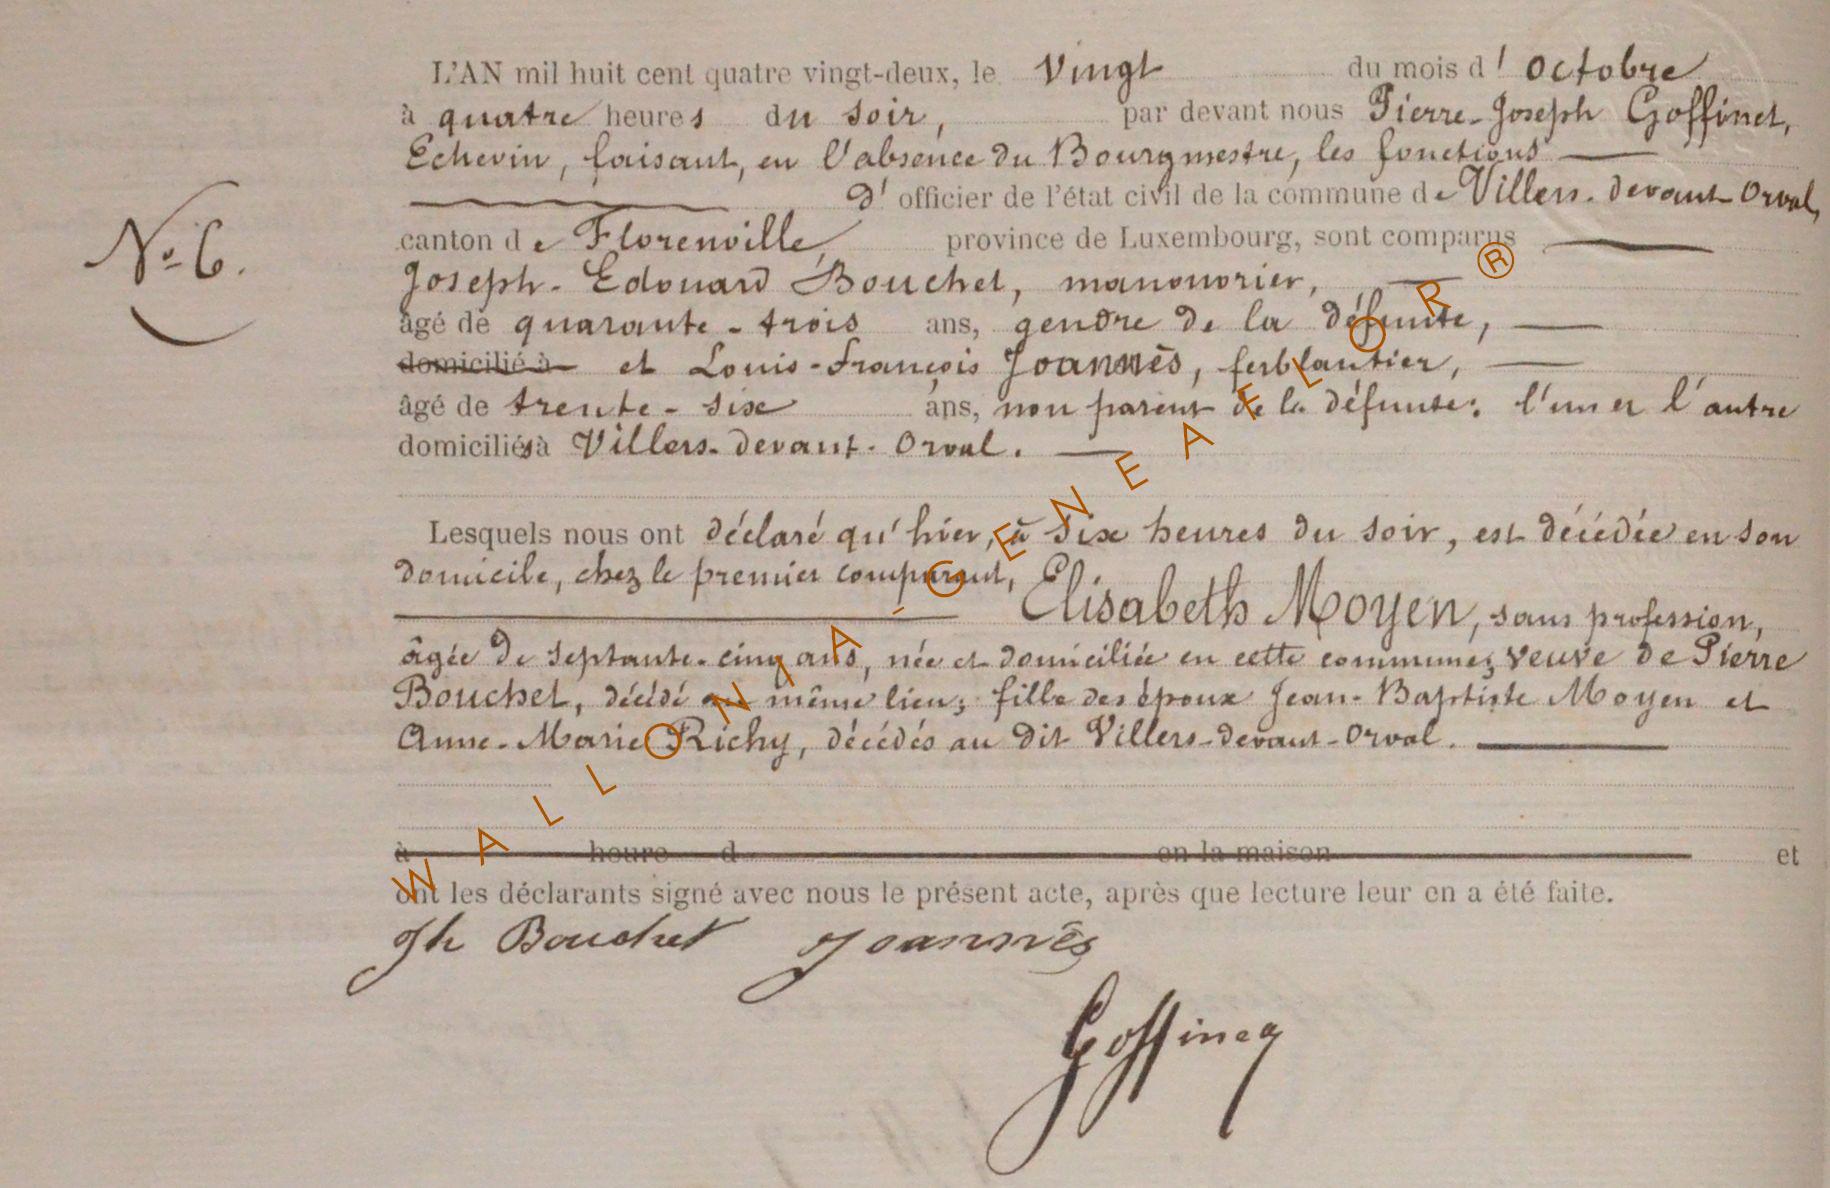 L'AN mil huit cent quatre vingt-deux, le vingt du mois d'octobre
à quatre heures du soir, par devant nous Pierre-Joseph Goffinet,
Echevin, faisant, en l'absence du Bourgmestre, les fonctions
d'officier de l'état civil de la commune de Villers-devant-Orval,
N° 6.
canton de Florenville, province de Luxembourg, sont comparus
Joseph-Edouard Bouchet, manouvrier,
âgé de quarante-trois ans, gendre de la défunte,
domicilié à et Louis-François Joannès, ferblantier,
âgé de trente-six ans, non parent de la défunte; l'un et l'autre
domiciliés à Villers-devant-Orval.
Lesquels nous ont déclaré qu'hier, à six heures du soir, est décédée en son
domicile, chez le premier comparant,
Elisabeth Moyen, sans profession,
âgée de septante-cinq ans, née et domiciliée en cette commune; veuve de Pierre
Bouchet, décédé au même lieu; fille des époux Jean-Baptiste Moyen et
Anne-Marie Richy, décédés au dit Villers-devant-Orval.
à heure d en la maison et
ont les déclarants signé avec nous le présent acte, après que lecture leur en a été faite.
Jh Bouchet Joannès
Goffinet
WALLONIA-GENEAFLOR®